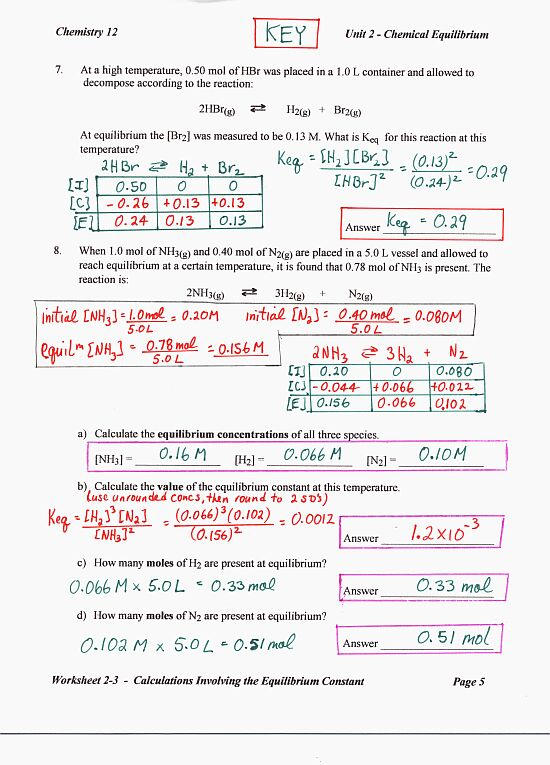 Chemistry 12
KEY
Unit 2 - Chemical Equilibrium
7. At a high temperature, 0.50 mol of HBr was placed in a 1.0 L container and allowed to
decompose according to the reaction:
2HBr(g) ⇌ H2(g) + Br2(g)
At equilibrium the [Br2] was measured to be 0.13 M. What is Keq for this reaction at this
temperature?
2HBr ⇌ H2 + Br2
[I] 0.50 0 0
[C] -0.26 +0.13 +0.13
[E] 0.24 0.13 0.13
Keq = [H2][Br2] / [HBr]² = (0.13)² / (0.24)² = 0.29
Answer Keq = 0.29
8. When 1.0 mol of NH3(g) and 0.40 mol of N2(g) are placed in a 5.0 L vessel and allowed to
reach equilibrium at a certain temperature, it is found that 0.78 mol of NH3 is present. The
reaction is:
2NH3(g) ⇌ 3H2(g) + N2(g)
initial [NH3] = 1.0mol / 5.0L = 0.20M initial [N2] = 0.40 mol / 5.0L = 0.080M
equilᵐ [NH3] = 0.78mol / 5.0L = 0.156M
2NH3 ⇌ 3H2 + N2
[I] 0.20 0 0.080
[C] -0.044 +0.066 +0.022
[E] 0.156 0.066 0.102
a) Calculate the equilibrium concentrations of all three species.
[NH3] = 0.16 M [H2] = 0.066 M [N2] = 0.10M
b) Calculate the value of the equilibrium constant at this temperature.
(use unrounded concs, then round to 2 SD's)
Keq = [H2]³[N2] / [NH3]² = (0.066)³(0.102) / (0.156)² = 0.0012
Answer 1.2×10⁻³
c) How many moles of H2 are present at equilibrium?
0.066 M × 5.0 L = 0.33 mol
Answer 0.33 mol
d) How many moles of N2 are present at equilibrium?
0.102 M × 5.0 L = 0.51 mol
Answer 0.51 mol
Worksheet 2-3 - Calculations Involving the Equilibrium Constant
Page 5